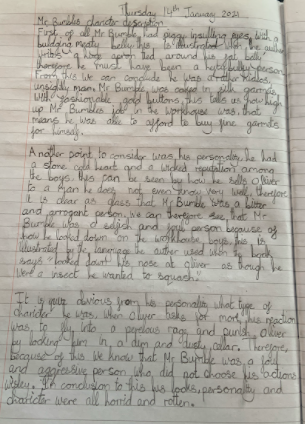 Thursday 14th January 2021
Mr Bumbles charicter description
First of all Mr Bumble had piggy, insulting eyes with a
bulding meaty belly this is illustrated when the author
writes a large apron tied around his red belly
therefore he must have been a hefty belly person.
From this we can conclude he was a rather
unsightly man. Mr Bumble was in silk garments
with fashionable gold buttons, this tells us how high
up Mr Bumbles job in the workhouse was, that
means he was able to afford to buy fine garments
for himself.
Another point to consider was his personality, he had
a stone cold heart and a wicked reputation among
the boys, this can be seen by how he sells Oliver
to a man he does not even know very well, therefore
it is clear as glass that Mr Bumble was a bitter
and arrogant person. We can therefore see that Mr
Bumble was a selfish and foul person because of
how he looked down on the workhouse boys, this is
illustrated by language the author used when the book
says "looked down his nose at Oliver as though he
were a insect he wanted to squash."
It is quite obvious from his personality what type of
charicter he was. When Oliver asks for more, his reaction
was to fly into a rage and punish Oliver
by locking him in a dim and dusty cellar. Therefore,
because of this we know that Mr Bumble was a foul
and aggressive person who did not choose his actions
wisley. In conclusion to this his looks, personality and
charicter were all horrid and rotten.